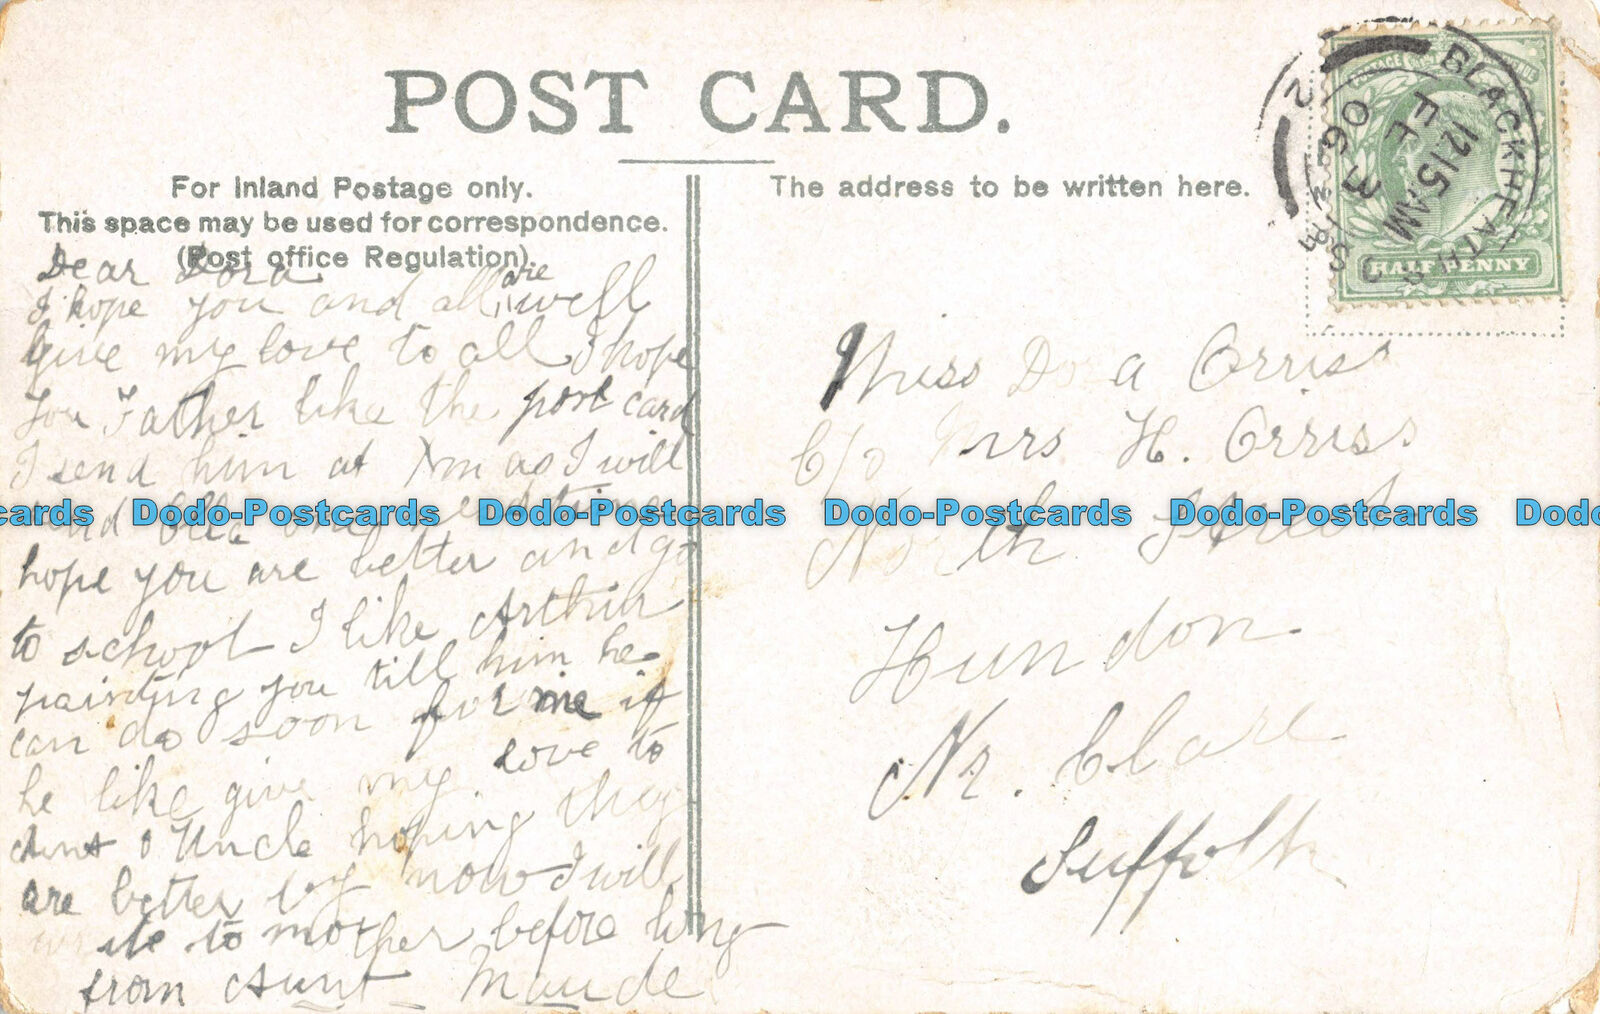 POST CARD.
For Inland Postage only.
This space may be used for correspondence.
(Post office Regulation).
The address to be written here.
BLACKHEATH
12.15 AM
FE 3
06
2
HALF PENNY
Dear Dora
I hope you and all are well
Give my love to all I hope
You Father like the post card
I send him at Xmas I will
send
hope you are better and go
to school I like Arthur
painting you till him he
can do soon for me if
he like give my love to
Aunt & Uncle hoping they
are better by now I will
write to mother before long
from Aunt Maude
Miss Dora Orriss
c/o Mrs H. Orriss
North Street
Hundon
Nr. Clare
Suffolk
cards Dodo-Postcards Dodo-Postcards Dodo-Postcards Dodo-Postcards Dodo